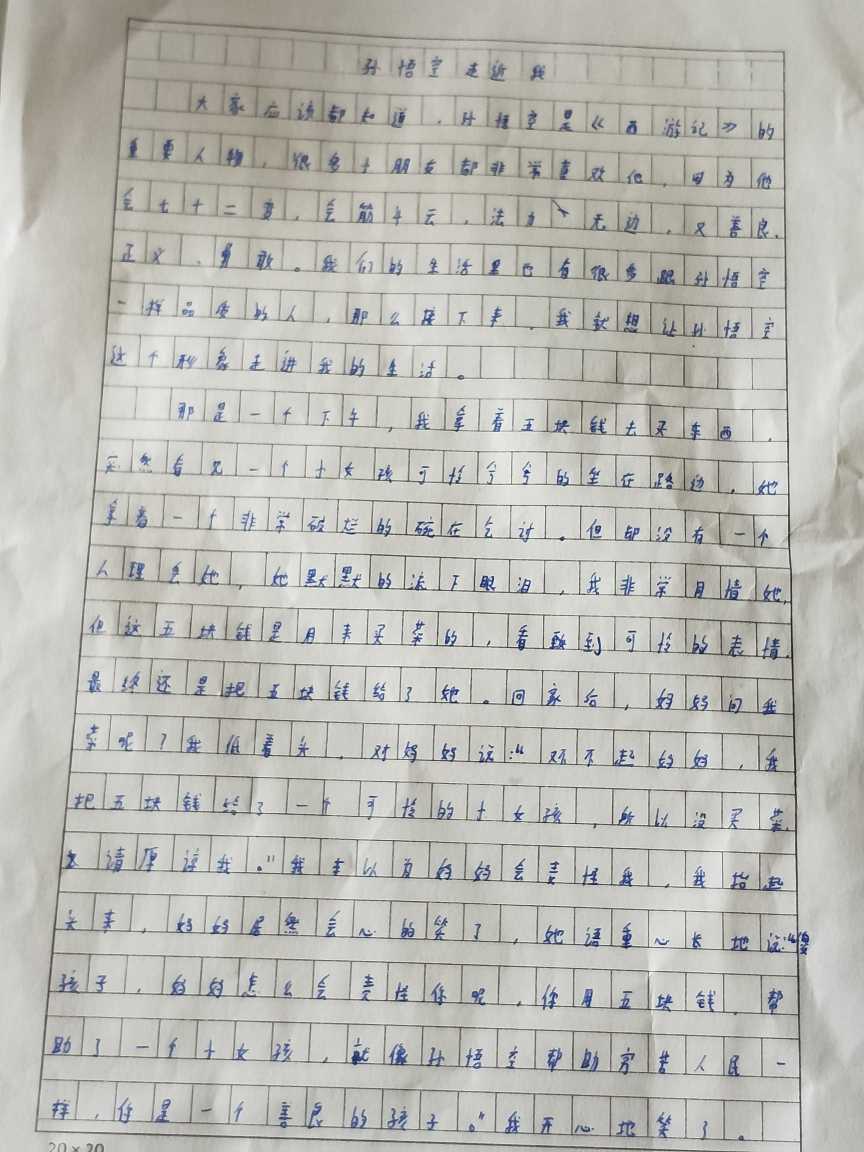 孙悟空走近我
大家应该都知道，孙悟空是《西游记》的
重要人物，很多小朋友都非常喜欢他，因为他
会七十二变，会筋斗云，法力无边，又善良、
正义、勇敢。我们的生活里也有很多跟孙悟空
一样品质的人，那么接下来，我就想让孙悟空
这个形象走进我的生活。
那是一个下午，我拿着五块钱去买东西，
突然看见一个小女孩可怜兮兮的坐在路边，她
拿着一个非常破烂的碗在乞讨。但却没有一个
人理会她，她默默的流下眼泪，我非常同情她，
但这五块钱是用来买菜的，看到可怜的表情，
最终还是把五块钱给了她。回家后，妈妈问我
菜呢？我低着头，对妈妈说：“对不起妈妈，我
把五块钱给了一个可怜的小女孩，所以没买菜，
请原谅我。”我本以为妈妈会责怪我，我抬起
头来，妈妈居然会心的笑了，她语重心长地说：“傻
孩子，妈妈怎么会责怪你呢，你用五块钱，帮
助了一个小女孩，就像孙悟空帮助穷苦人民一
样，你是一个善良的孩子。”我开心地笑了。
20×20